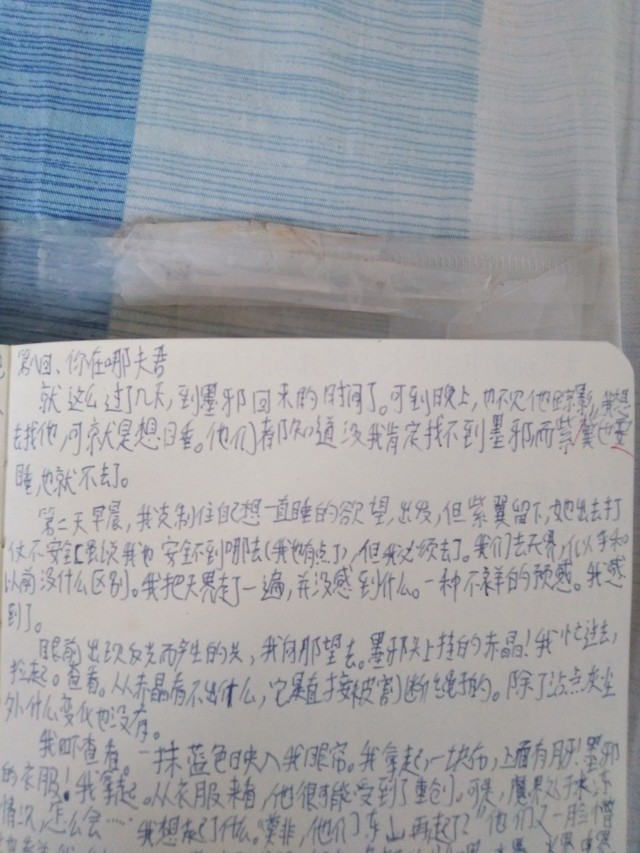 第八回、你在哪夫君
就这么过了几天，到墨邪回来的时间了。可到晚上，也不见他踪影，我想
去找他，可就是想睡。他们都知道没我肯定找不到墨邪而紫翼也要
睡，也就不去了。
第二天早晨，我克制住自己想一直睡的欲望，出发，但紫翼留下，她出去打
仗不安全[虽说我也安全不到哪去(我也有点)，但我必须去]。我们去天界，(似乎和
以前没什么区别)。我把天界走了一遍，并没感到什么。一种不祥的预感。我感
到了。
眼前出现反光而产生的光，我向那望去。墨邪头上挂的赤晶！我忙过去，
捡起。查看。从赤晶看不出什么，它是直接被割断绳掉的。除了沾点灰尘
外什么变化也没有。
我四下查看。一抹蓝色映入我眼帘。我拿起一块布，上面有
的衣服！我拿起。从衣服来看，他很可能受到了重创。可是，魔界
情况，怎么会……我想起了什么。"莫非，他们东山再起了？"他们又一脸懵